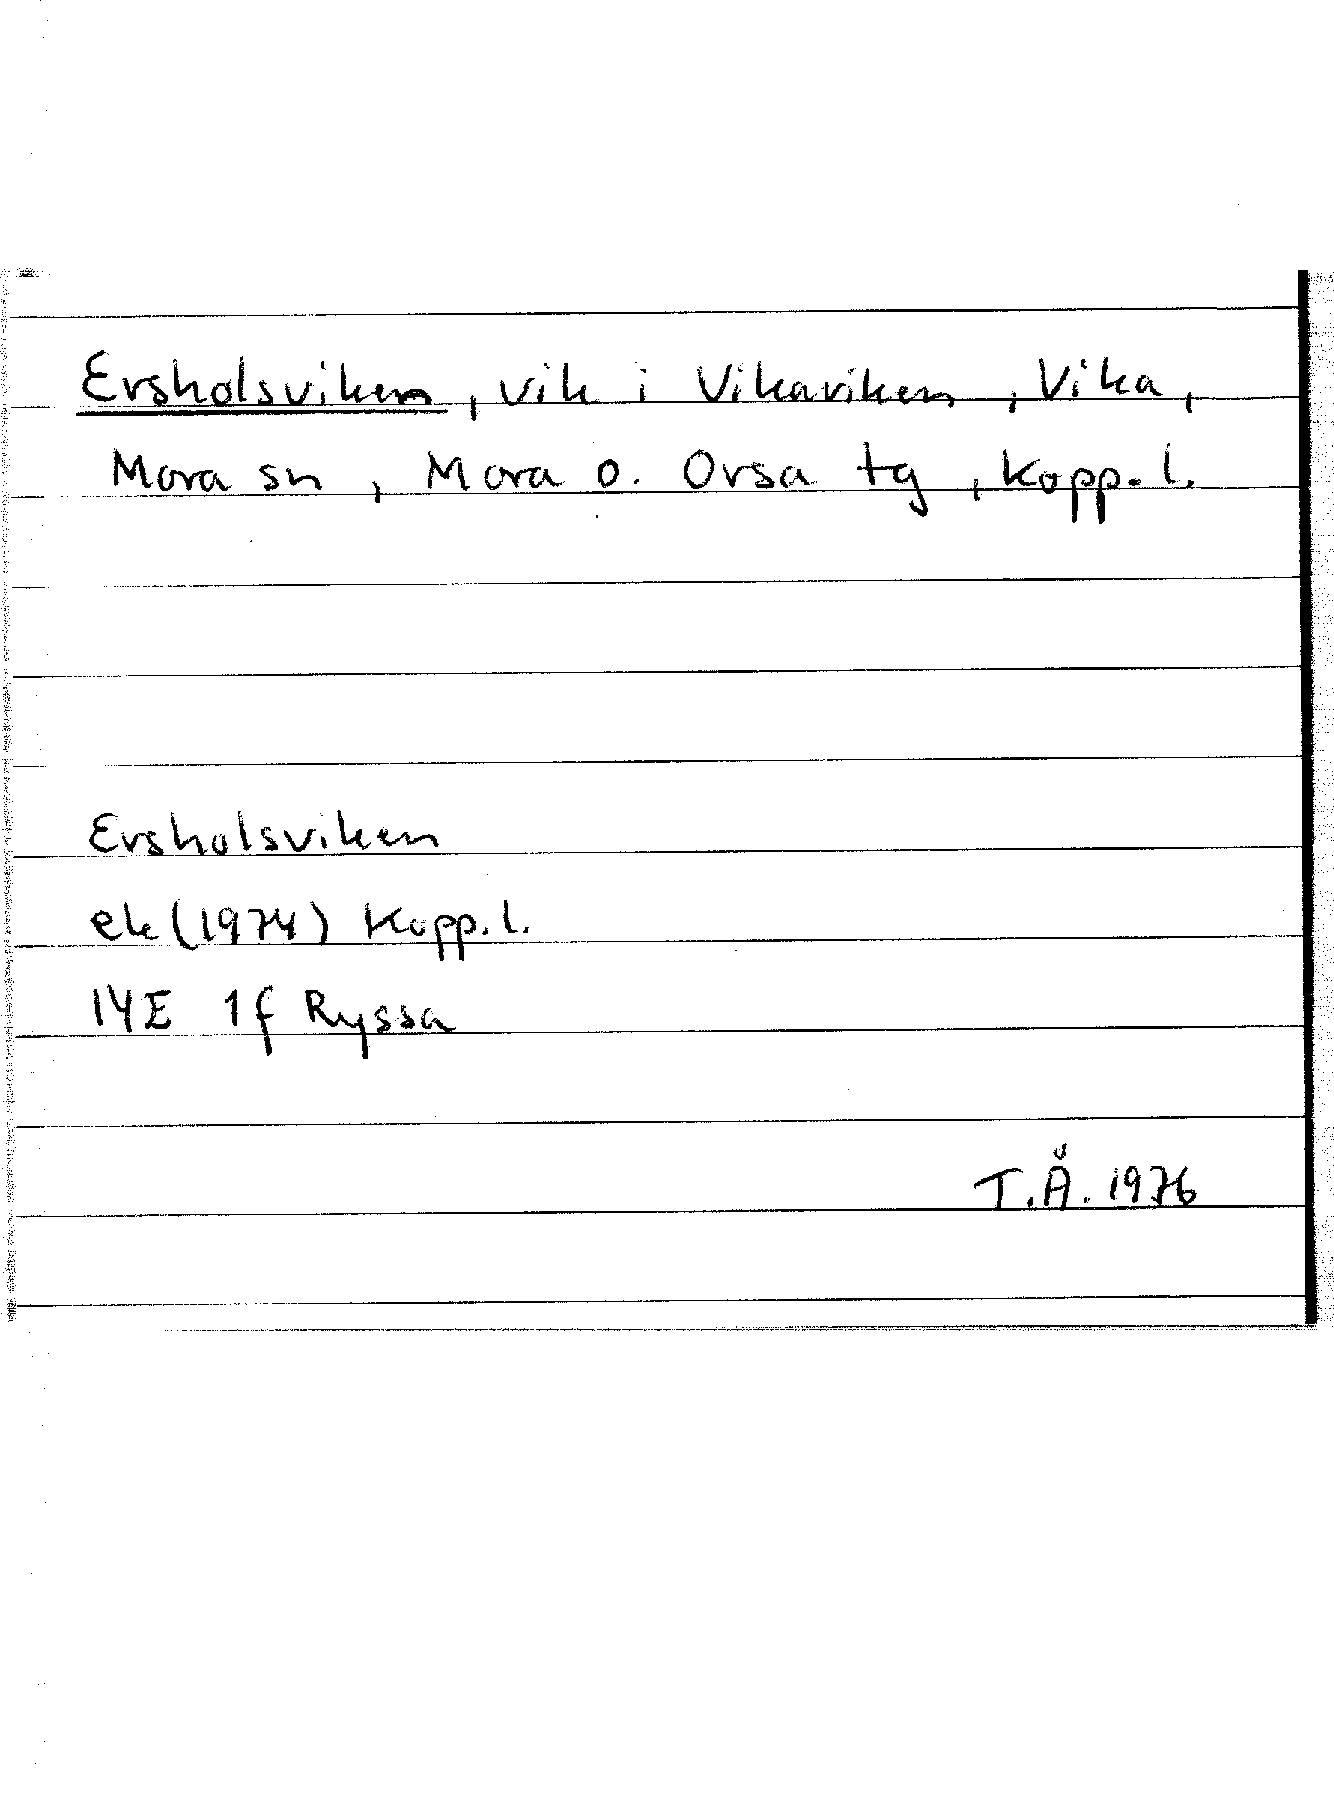 Ersholsviken, vik i Vikaviken, Vika,
Mora sn, Mora o. Orsa tg, Kopp. l.
Ersholsviken
ek (1974) Kopp. l.
14E 1f Ryssa
T.Å. 1976